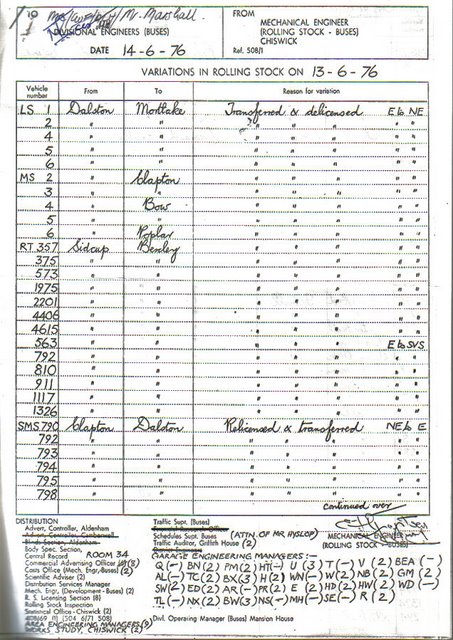 Mr. Marshall.
DIVISIONAL ENGINEERS (BUSES)
DATE 14-6-76
FROM
MECHANICAL ENGINEER
(ROLLING STOCK - BUSES)
CHISWICK
Ref. 508/1
VARIATIONS IN ROLLING STOCK ON 13-6-76
Vehicle number From To Reason for variation
LS 1 Dalston Mortlake Transferred & delicensed E to NE
2 " " " " " " "
4 " " " " " " "
5 " " " " " " "
6 " " " " " " "
MS 2 " Clapton " " " " "
3 " " " " " " "
4 " Bow " " " " "
5 " " " " " " "
6 " Poplar " " " " "
RT 357 Sidcup Bexley " " " " "
375 " " " " " " "
573 " " " " " " "
1975 " " " " " " "
2201 " " " " " " "
4406 " " " " " " "
4615 " " " " " " "
563 " " " " " E to SVS
792 " " " " " " "
810 " " " " " " "
911 " " " " " " "
1117 " " " " " " "
1326 " " " " " " "
SMS 790 Clapton Dalston Relicensed & transferred NE to E
792 " " " " " " "
793 " " " " " " "
794 " " " " " " "
795 " " " " " " "
798 " " " " " " "
continued over
DISTRIBUTION
Advert, Controller, Aldenham
Advert, Controller, Camberwell
Body Spec. Section,
Central Record ROOM 34
Commercial Advertising Officer (3)
Costs Office (Mech. Engr. Buses) (2)
Scientific Adviser (2)
Distribution Services Manager
Mech. Engr, (Development - Buses) (2)
R. S. Licensing Section (8)
Rolling Stock Inspection
Disposal Office - Chiswick (2)
AREA ENGINEERING MANAGERS (2)
WORKS STUDY, CHISWICK (2)
Traffic Supt. (Buses)
Schedules Supt. Buses (ATTN. OF MR. HYSLOP)
Traffic Auditor, Griffith House (2)
MECHANICAL ENGINEER
(ROLLING STOCK - BUSES)
GARAGE ENGINEERING MANAGERS :-
Q (-) BN (2) PM (2) HT (-) U (3) T (-) V (2) BEA (-)
AL (-) TC (2) BX (3) H (2) WN (-) W (2) NB (2) GM (2)
SW (2) ED (2) AR (-) PR (2) E (2) HD (2) HW (2) WD (-)
TL (-) NX (2) BW (3) NS (-) MH (-) SE (-) R (2)
Divl. Operating Manager (Buses) Mansion House